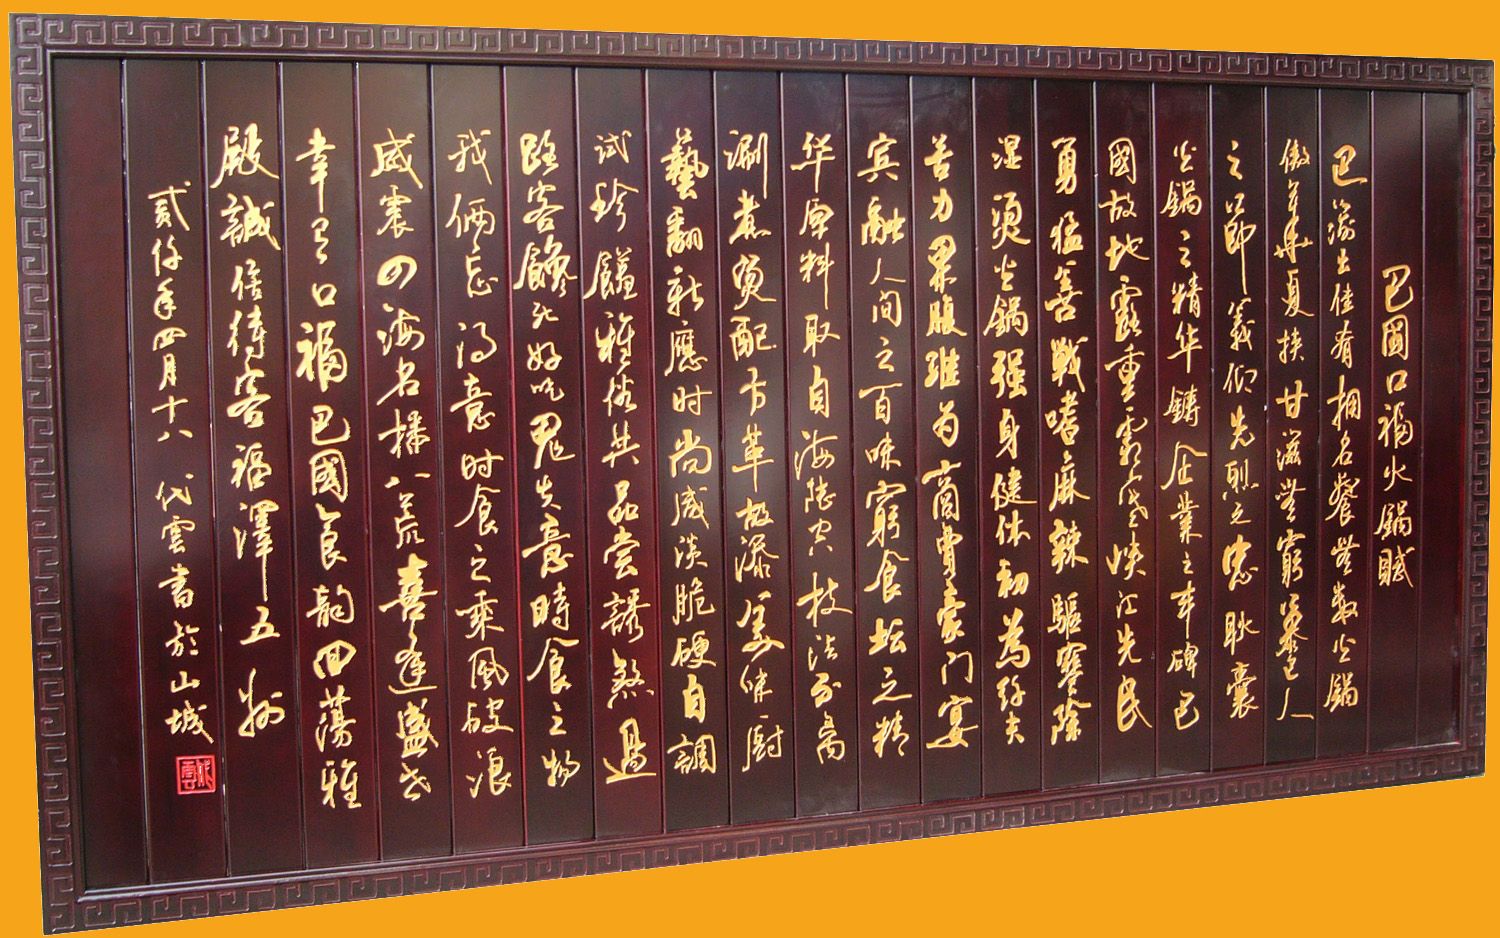 巴國口福火鍋賦
巴渝出佳肴捆名餐誉数火鍋
傲立華夏挟甘滋誉窮慕巴人
之節義仰先烈之忠耿囊
火鍋之精华鑄企業之丰碑巴
國故地雲重霧峡江先民
勇猛善戰嗜麻辣驅寒除
湿燙火鍋强身健体初為纤夫
苦力果腹继为商賈豪门宴
宾融人间之百味窮食坛之精
华原料取自海陆空技法列
涮煮燙配方革故添美味厨
藝翻新應时尚咸淡脆硬自調
试珍饈雅俗共品尝誘煞過
路客饞死好吃鬼失意時食之物
我俩忘得意时食之乘风破浪
威震四海名播八荒喜逢盛世
幸有口福巴國食韵回蕩雅
殿誠信待客福澤五洲
贰仟年四月十八 代雲書於山城